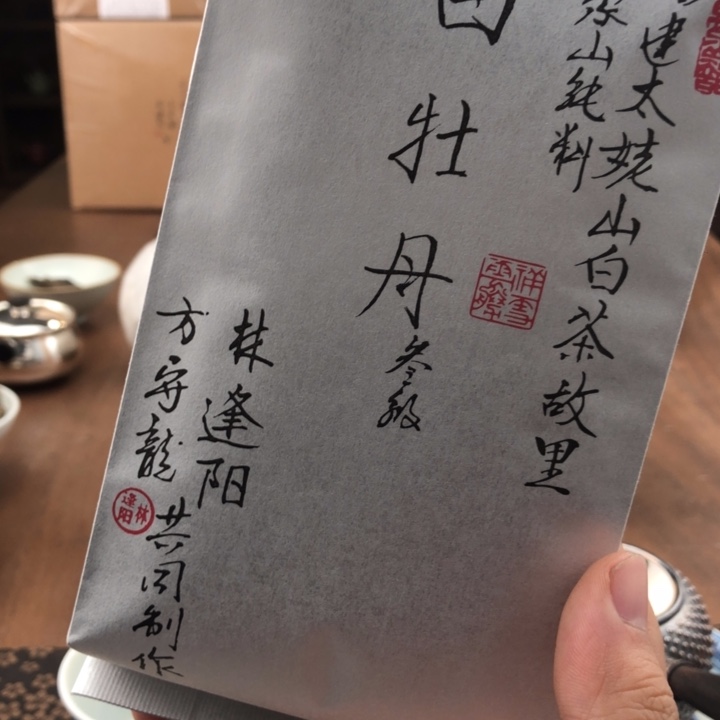 建太姥山白茶故里
山纯料
牡丹
级
林逢阳
方守龍 共同制作
林逢阳